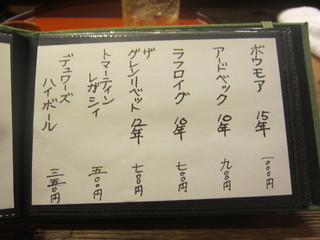 ボウモア 15年 一〇〇〇円
アードベック 10年 九〇〇円
ラフロイグ 10年 七〇〇円
ザ
グレンリベット 12年 七〇〇円
トマーティン
レガシィ 五〇〇円
デュワーズ
ハイボール 三五〇円